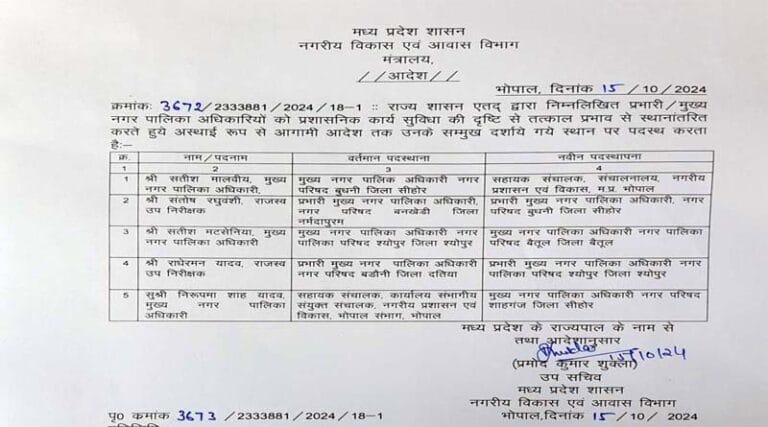 मध्य प्रदेश शासन
नगरीय विकास एवं आवास विभाग
मंत्रालय,
//आदेश//
भोपाल, दिनांक 15/10/2024
क्रमांकः 3672/2333881/2024/18-1 :: राज्य शासन एतद् द्वारा निम्नलिखित प्रभारी/मुख्य
नगर पालिका अधिकारियों को प्रशासनिक कार्य सुविधा की दृष्टि से तत्काल प्रभाव से स्थानांतरित
करते हुये अस्थाई रूप से आगामी आदेश तक उनके सम्मुख दर्शाये गये स्थान पर पदस्थ करता
है:–
क्र. नाम/पदनाम वर्तमान पदस्थाना नवीन पदस्थापना
1 2 3 4
1 श्री सतीश मालवीय, मुख्य मुख्य नगर पालिक अधिकारी नगर सहायक संचालक, संचालनालय, नगरीय
नगर पालिका अधिकारी, परिषद बुधनी जिला सीहोर प्रशासन एवं विकास, म.प्र. भोपाल
2 श्री संतोष रघुवंशी, राजस्व प्रभारी मुख्य नगर पालिका अधिकारी, प्रभारी मुख्य नगर पालिका अधिकारी, नगर
उप निरीक्षक नगर परिषद बनखेडी जिला परिषद बुधनी जिला सीहोर
नर्मदापुरम
3 श्री सतीश मटसेनिया, मुख्य मुख्य नगर पालिका अधिकारी नगर मुख्य नगर पालिका अधिकारी नगर पालिका
नगर पालिका अधिकारी पालिका परिषद श्योपुर जिला श्योपुर परिषद बैतूल जिला बैतूल
4 श्री राधेरमन यादव, राजस्व प्रभारी मुख्य नगर पालिका अधिकारी प्रभारी मुख्य नगर पालिका अधिकारी नगर
उप निरीक्षक नगर परिषद बडौनी जिला दतिया पालिका परिषद श्योपुर जिला श्योपुर
5 सुश्री निरूपमा शाह यादव, सहायक संचालक, कार्यालय संभागीय मुख्य नगर पालिका अधिकारी नगर परिषद
मुख्य नगर पालिका संयुक्त संचालक, नगरीय प्रशासन एवं शाहगंज जिला सीहोर
अधिकारी विकास, भोपाल संभाग, भोपाल
मध्य प्रदेश के राज्यपाल के नाम से
तथा आदेशानुसार
15/10/24
(प्रमोद कुमार शुक्ला)
उप सचिव
मध्य प्रदेश शासन
नगरीय विकास एवं आवास विभाग
पृ0 कमांक 3673/2333881/2024/18-1 भोपाल,दिनांक 15/10/2024